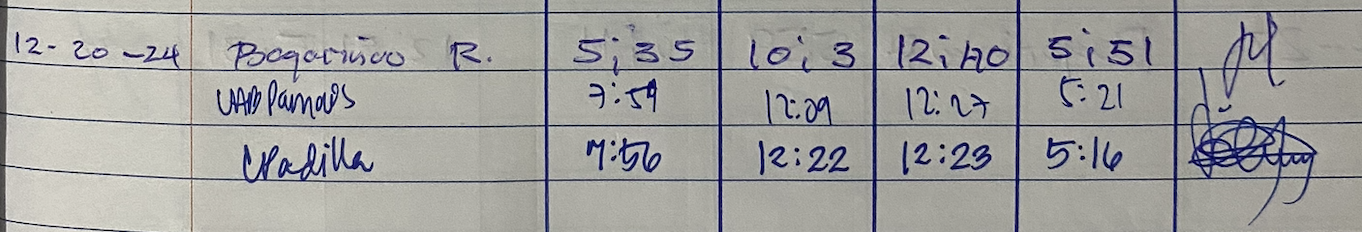 12-20-24 R. 5;35 10;3 12;40 5;51
7:59 12:09 12:27 5:21
CPadilla 7:56 12:22 12:23 5:16